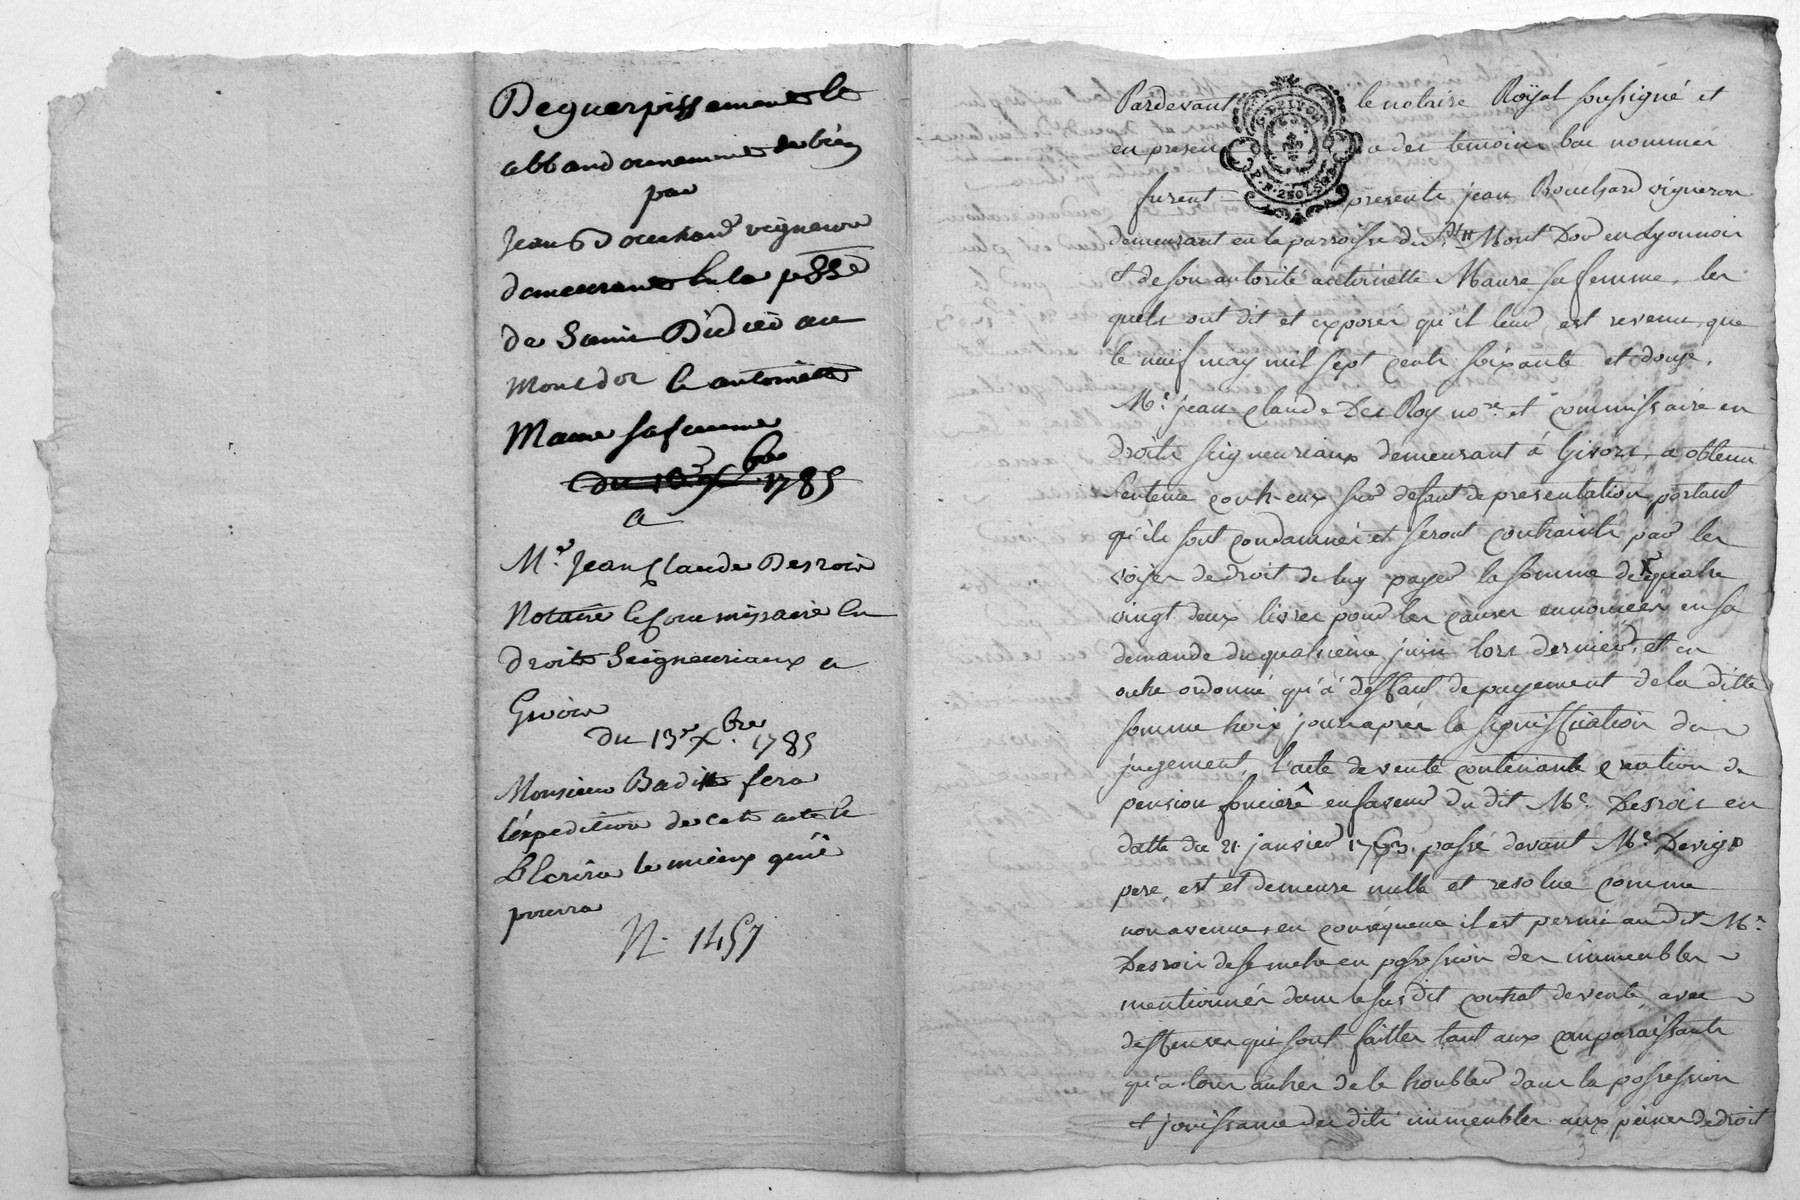 Deguerpissement et
abbandonnement de biens
par
Jean Bouchard vigneron
demeurant en la psse
de Saint Didier au
Montdor et antoinette
Maure sa femme
du 13e Xbre 1785
a
Me Jean Claude Desrois
Notaire et Commissaire en
droits Seigneuriaux a
Givors
du 13e Xbre 1785
Monsieur Badin fera
l'expedition de cet acte et
L'Ecrira le mieux qu'il
pourra
N. 1457
Pardevant le notaire Royal soussigné et
en presence des temoins bas nommés
furent presents jean Bouchard vigneron
demeurant en la parroisse de St Mont Dor en Lyonnois
et de son autorité antoinette Maure sa femme, les
quels ont dit et exposer qu'il leur est revenu que
le neuf may mil sept cents soixante et douze.
Me. jean claude Des Roy nore et commissaire en
droits seigneuriaux demeurant à Givors, a obtenu
sentence contr-eux sur defaut de presentation portant
qu'ils sont condamnés et seront contraints par les
voyes de droit de luy payer la somme de quatre
vingt deux livres pour les causes ennoncées en sa
demande du quatrieme juin lors dernier, et en
outre ordonné qu'à deffaut de payement de la ditte
somme trois jours après la signiffication du
jugement, L'acte de vente contenante creation de
pension fonciere en faveur du dit Me. Desrois en
datte du 21 janvier 1763. passé devant Me
pere, est et demeure nulle et resolue comme
non avenue, en consequence il est permi au dit Me.
Desrois de se metre en possession des immeubles
mentionnés dans le susdit contrat de vente, avec
deffenses qui sont faittes tant aux comparaissants
qu'a tous autres de le troubler dans la possession
et jouissance des dits immeubles aux peines de droit